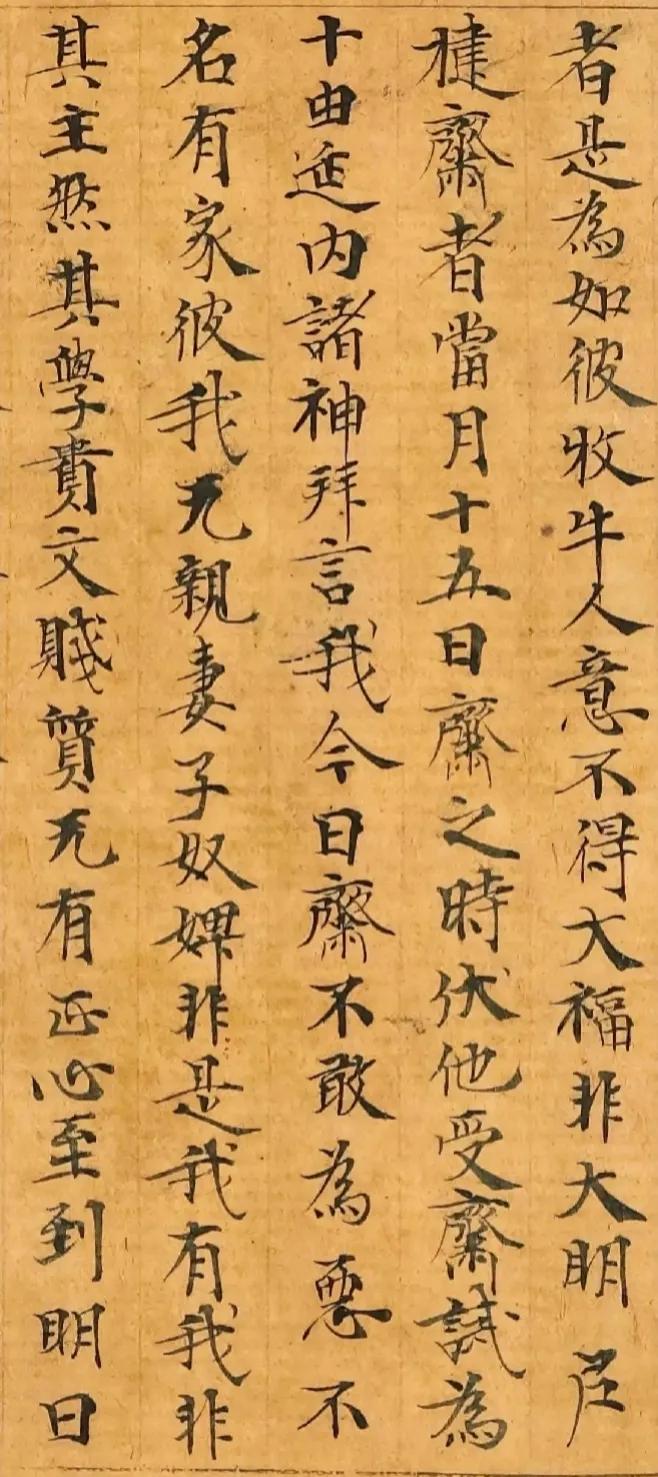 者是為如彼牧牛人意不得大福非大明尼
揵齋者當月十五日齋之時伏他受齋誡為
十由延内諸神拜言我今日齋不敢為惡不
名有家彼我无親妻子奴婢非是我有我非
其主然其學貴文賤質无有正心至到明日